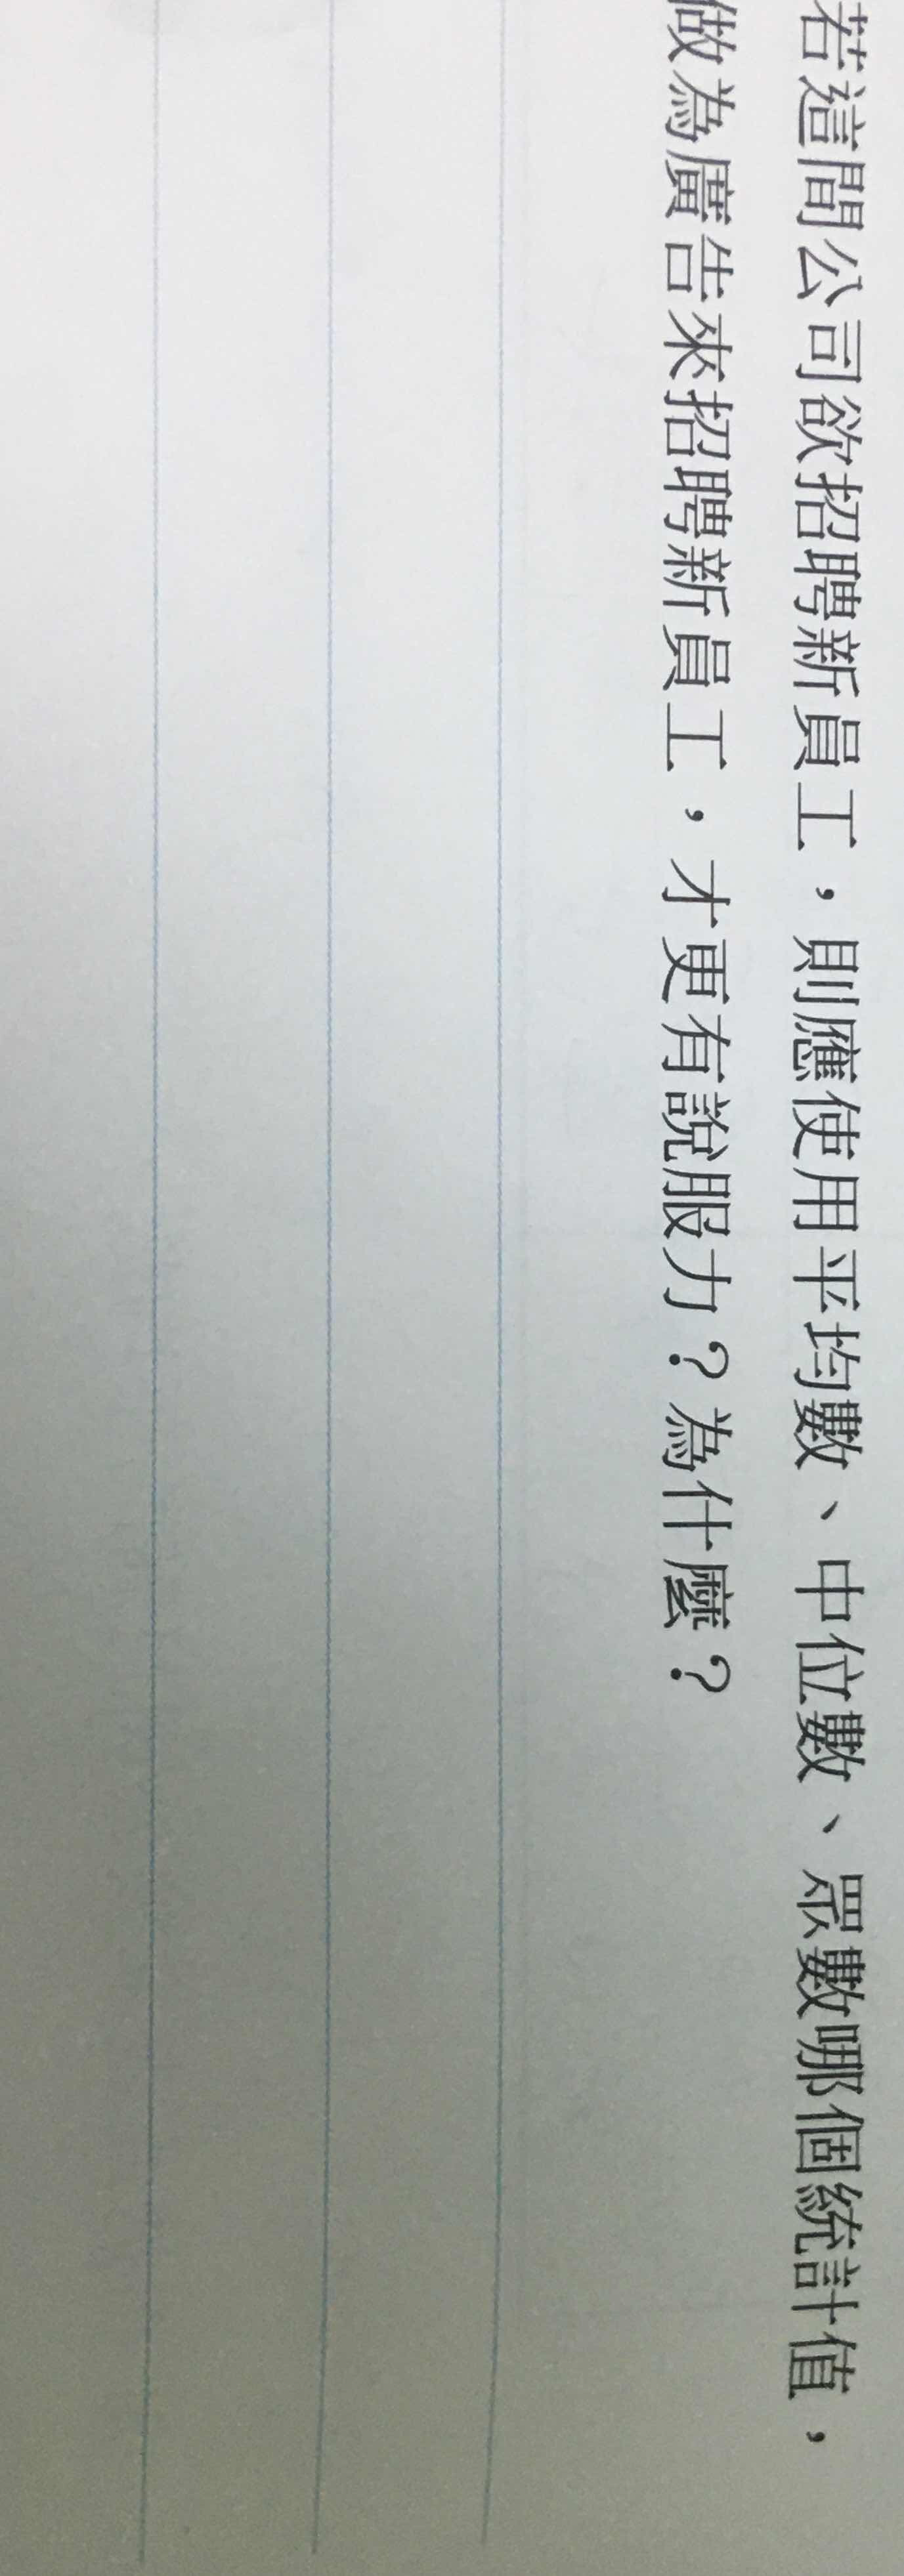 若這間公司欲招聘新員工，則應使用平均數、中位數、眾數哪個統計值，
做為廣告來招聘新員工，才更有說服力？為什麼？